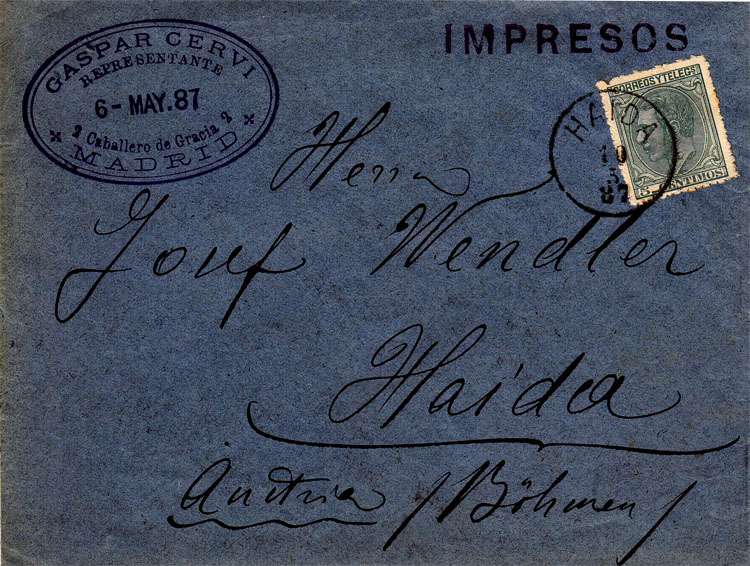 GASPAR CERVI
REPRESENTANTE
6- MAY. 87
2 Caballero de Gracia 2
MADRID
IMPRESOS
CORREOS Y TELEGS
5 CENTIMOS
HAIDA
10
5
87
Herrn
Josef Wendler
Haida
Austria / Böhmen /